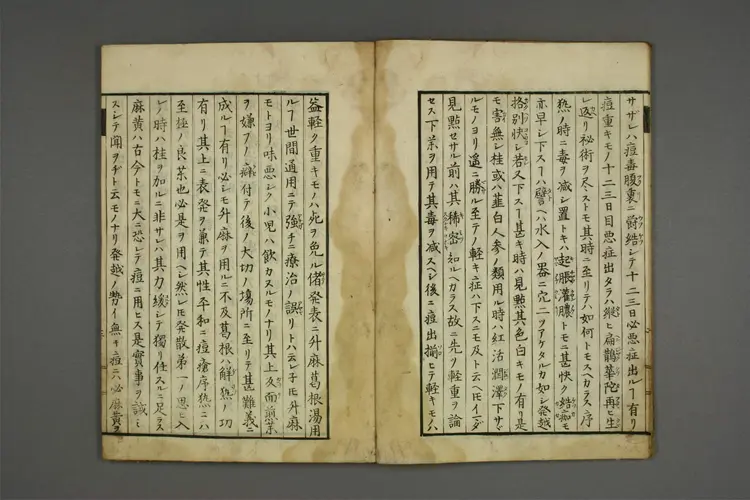 サザレハ痘毒腹裏ニ欝結シテ十二三日必悪症出ルヿ有リ
痘重キモノ十二三日目悪症出タラハ縦ヒ扁鵲華陀再ヒ生
レ返リ秘術ヲ尽ストモ其時ニ至リテハ如何トモスヘカラス序
熱ノ時ニ毒ヲ减シ置トキハ起脹灌膿トモニ甚快ク結痂モ
亦早シ下スヿハ譬ヘハ水入ノ器ニ穴二ツアケタルカ如シ発越
格別快シ若又下スヿ甚キ時ハ見㸃其色白キモノ有リ是
モ害無シ桂或ハ韮白人参ノ類用ル時ハ紅活潤澤下サヾ
ルモノヨリ遥ニ勝ル至テノ軽キ症ハ下スニモ及ト云ヘトモイマダ
見㸃セサル前ハ其稀密知ルヘカラス故ニ先ツ軽重ヲ論
セス下薬ヲ用テ其毒ヲ减スヘシ後ニ痘出揃ヒテ軽キモノハ
益軽ク重キモノハ死ヲ免ル偖発表ニ升麻葛根湯用
ルヿ世間通用ニテ強チニ療治ノ誤リトハ云ヘ子トモ升麻
モトヨリ味悪シク小児ハ飲カヌルモノナリ其上反面煎薬
ヲ嫌フノ癖付テ後ノ大切ノ場所ニ至リテ甚難義ニ
成ルヿ有リ必シモ升麻ヲ用ルニ不及葛根ハ解熱ノ功
有リ其上ニ表発ヲ兼テ其性平和ニ痘瘡序熱ニハ
至極ノ良薬也必是ヲ用ヘシ然レトモ発散弟一ノ思ヒ入
レノ時ハ桂ヲ加ルニ非サレハ其力緩シテ獨リ任スルニ足ラス
麻黄ハ古今トモニ大ニ恐レテ痘ニ用ヒス是實事ヲ試ミ
スシテ聞ヲヂト云モノナリ発越ノ勢イ無キ痘ニハ必麻黄ヲ